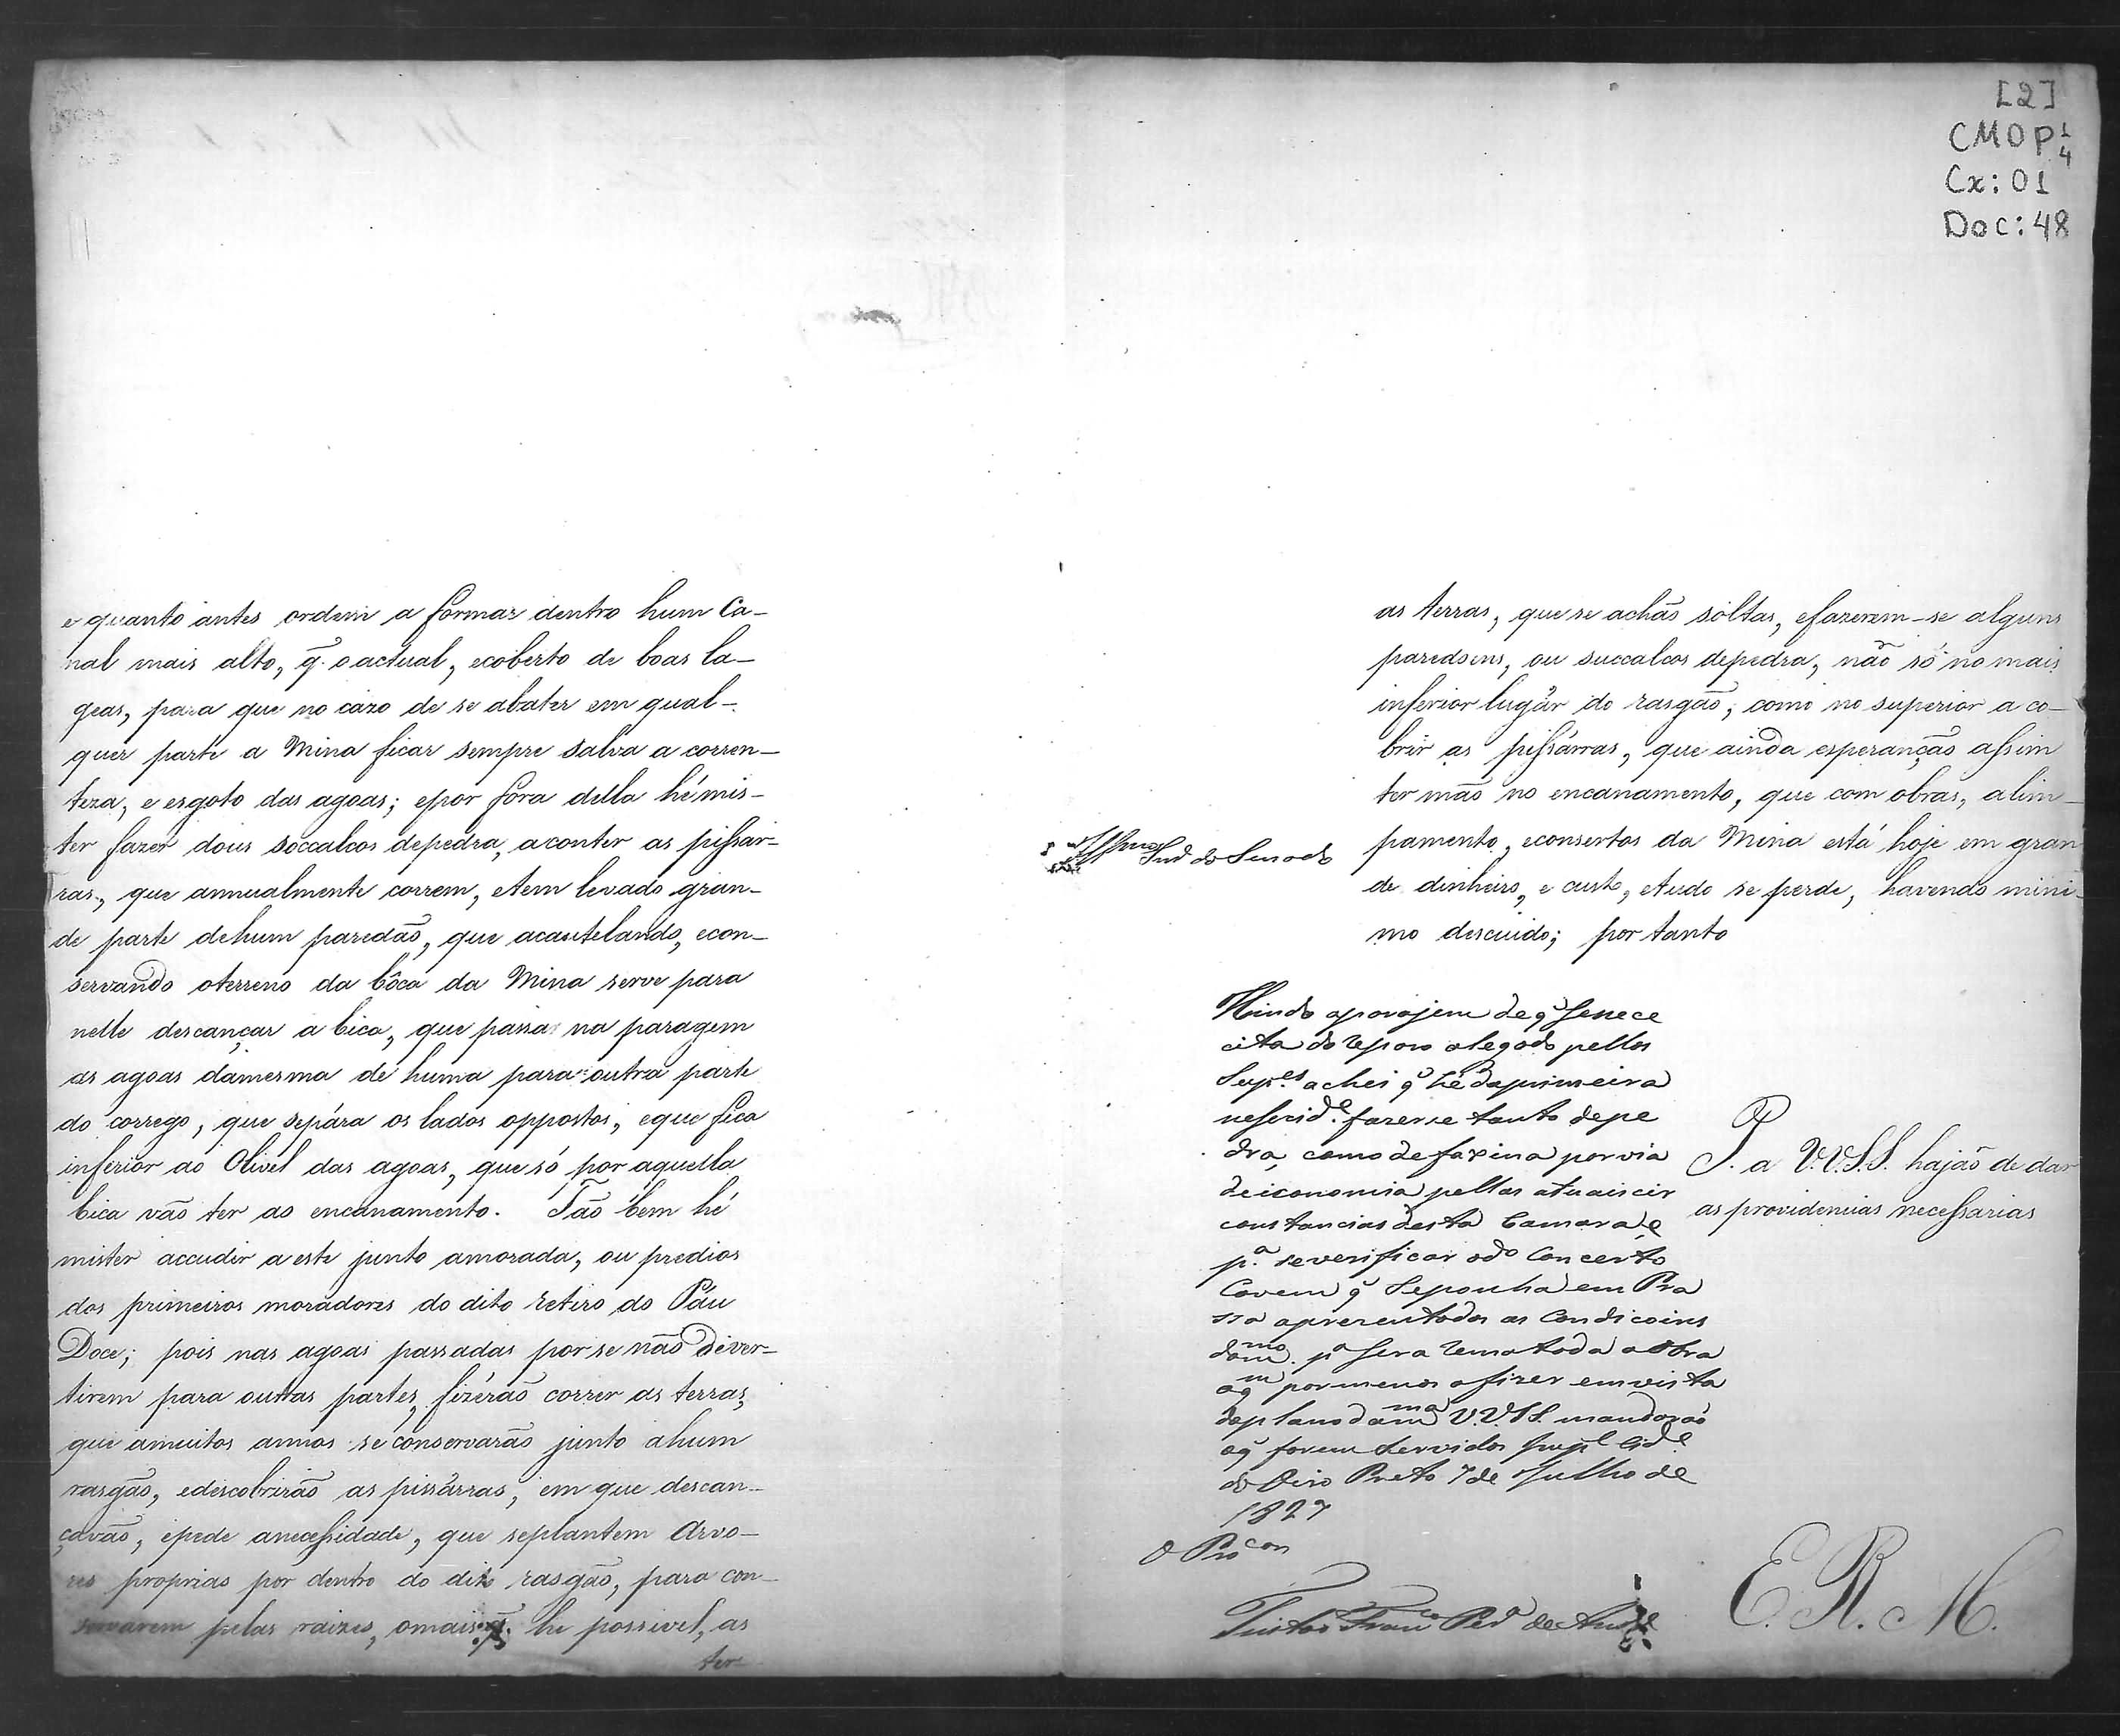 e quanto antes ordem a formar dentro hum Ca-
nal mais alto, q̃. o actual, ecoberto de boas la-
geas, para que no cazo de se abater em qual-
quer parte a Mina ficar sempre salva a corren-
teza, e esgoto das agoas; epor fora della hé mis-
ter fazer dous soccalcos depedra, aconter as pissar-
ras, que annualmente correm, etem levado gran-
de parte dehum paredão, que acautelando, econ-
servando oterreno da bôca da Mina serve para
nelle descançar a bica, que passa na paragem
as agoas damesma de huma para outra parte
do corrego, que sepára os lados oppostos, eque fica
inferior ao Olivél das agoas, que só por aquella
bica vão ter ao encanamento. Tão bem hé
mister accudir a este junto amorada, ou predios
dos primeiros moradores do dito retiro do Páu
Doce; pois nas agoas passadas por se não diver-
tirem para outras partes, fizérão correr as terras,
que amuitos annos se conservarão junto ahum
rasgão, edescobrirão as pissárras, em que descan-
çavão, epede anecessidade, que seplantem Arvo-
res proprias por dentro do dito rasgão, para con-
servarem pelas raizes, omais q̃. he possivel, as
ter
[2]
CMOP 1/4
Cx: 01
Doc: 48
as terras, que se achão soltas, efazerem-se alguns
paredoens, ou succalcos depedra, não só no mais
inferior lugar do rasgão, como no superior a co-
brir as pissárras, que ainda esperanção assim
ter mão no encanamento, que com obras, alim-
pamento, econsertos da Mina está hoje em gran
de dinheiro, e custo, etudo se perde, havendo mini-
mo descuido; por tanto
do Senado
Hindo aparajem de q̃ Senece
cita do reparo alegado pellos
Sup.es achei q̃ hé daprimeira
nesecid.e fazerse tanto depe
dra, como defaxina porvia
deiconomia pellas atuaiscir
constancias desta Camara, e
p.a severificar odo Concerto
Covem q̃ Seponha em Pra
ssa aprezentadas as Condicoins
dam.mo p.a Sera Rematada a Obra
aq.m pormenos afizer emvista
doplano dam.ma V.V.SS. mandarão
oq̃ forem Servidos Imp.l Cid.e
do Oiro Preto 7 de Julho de
1827
O Procor
P. a V.V.S.S. hajão de dar
as providencias necessarias
E. R. M.